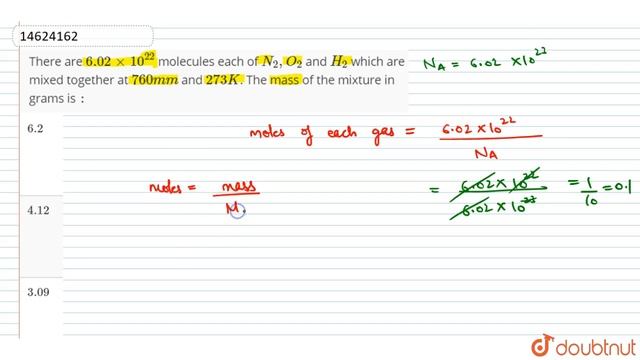 14624162
There are 6.02 × 10^22 molecules each of N₂, O₂ and H₂ which are
mixed together at 760mm and 273K. The mass of the mixture in
grams is :
N_A = 6.02 × 10^23
6.2
moles of each gas = 6.02 × 10^22 / N_A
moles = mass / M.
= 6.02 × 10^22 / 6.02 × 10^23 = 1/10 = 0.1
4.12
3.09
doubtnut